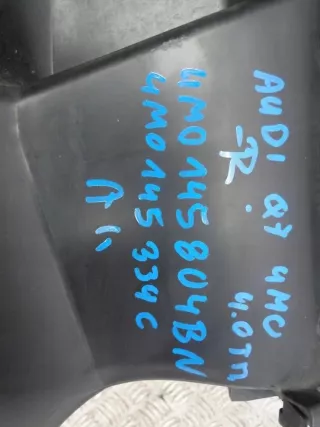 AUDI Q7 4MC 4.0TA
R
4M0145804BN
4M0145334C